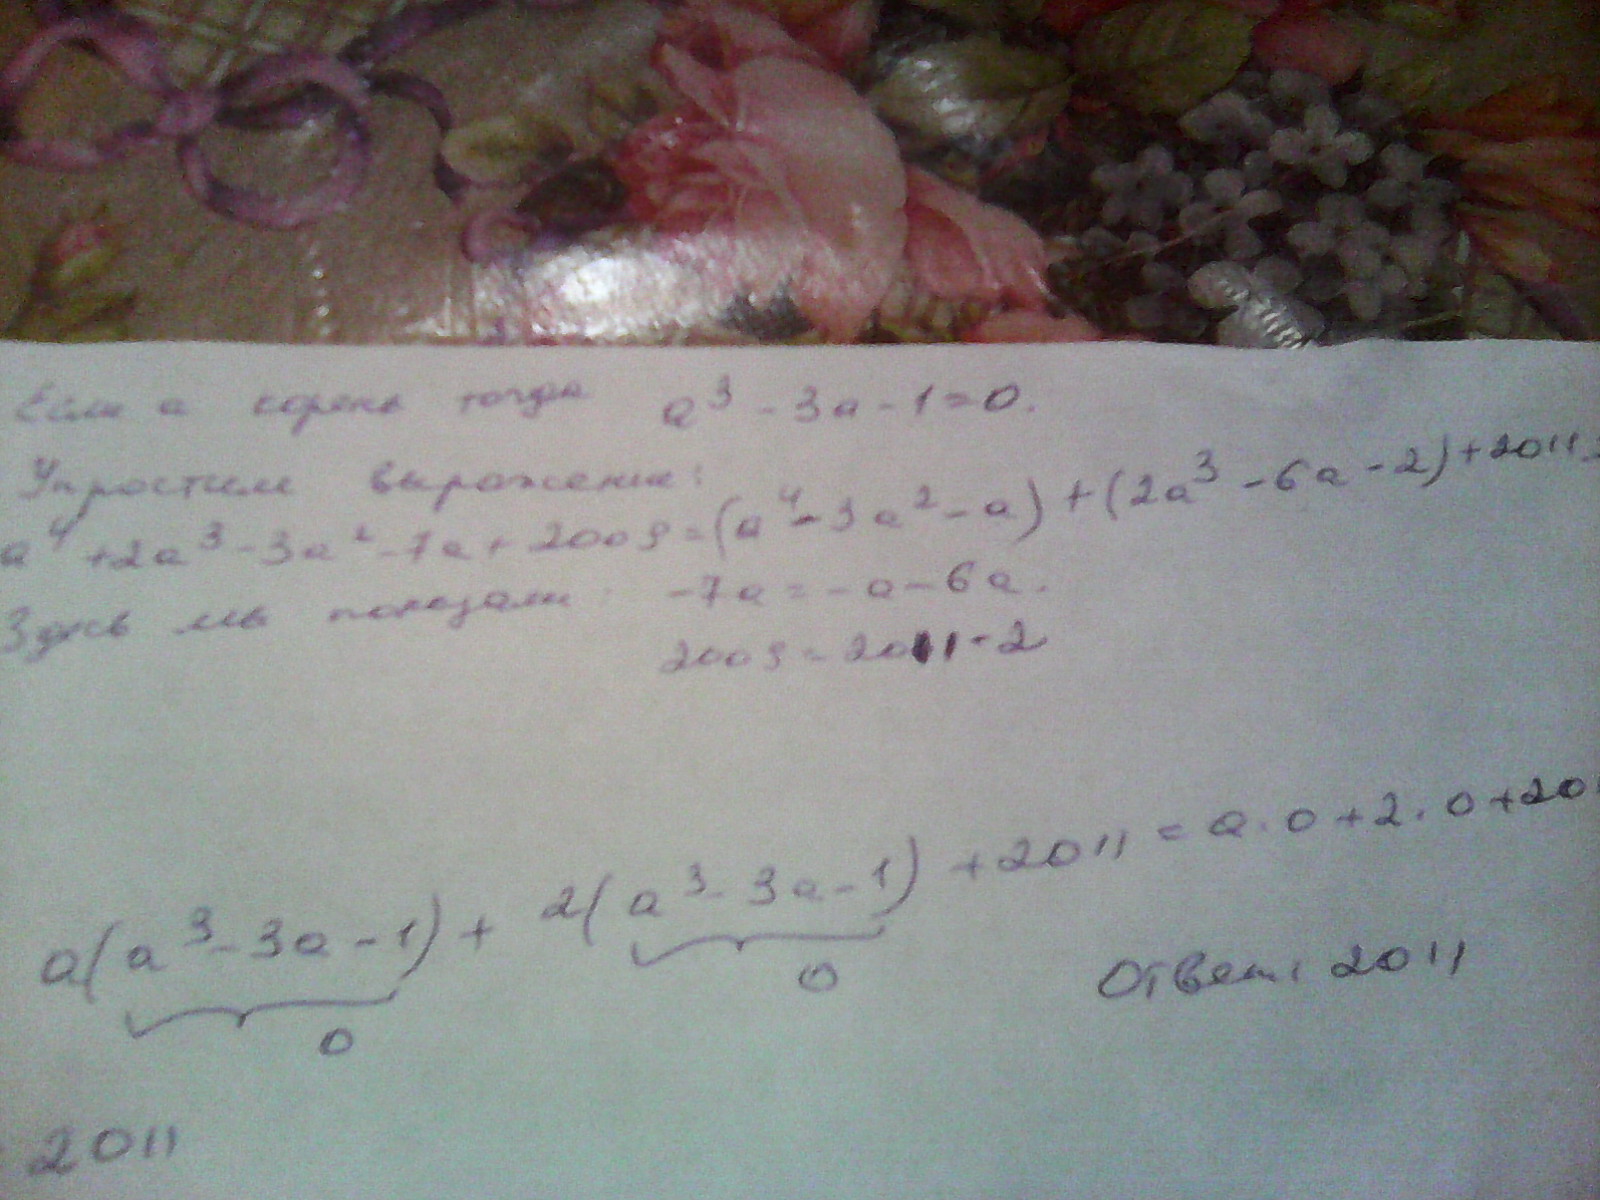 Если a корень тогда a³ - 3a - 1 = 0.
Упростим выражение:
a⁴ + 2a³ - 3a² - 7a + 2009 = (a⁴ - 3a² - a) + (2a³ - 6a - 2) + 2011 =
Здесь мы показали: -7a = -a - 6a.
2009 = 2011 - 2
a(a³ - 3a - 1) + 2(a³ - 3a - 1) + 2011 = a · 0 + 2 · 0 + 201
0 0
Ответ: 2011
= 2011